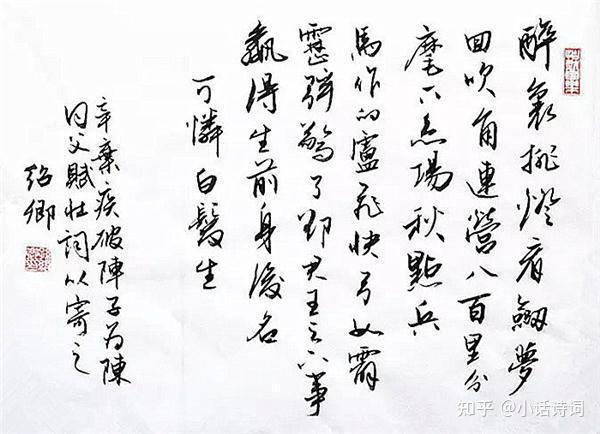 醉裏挑燈看劍夢
回吹角連營八百里分
麾下場秋點兵
馬作的盧飛快弓如霹
靂弦驚了却君王天下事
贏得生前身後名
可憐白髮生
辛棄疾破陣子為陳
同父賦壯詞以寄之
紹卿
知乎 @小话诗词